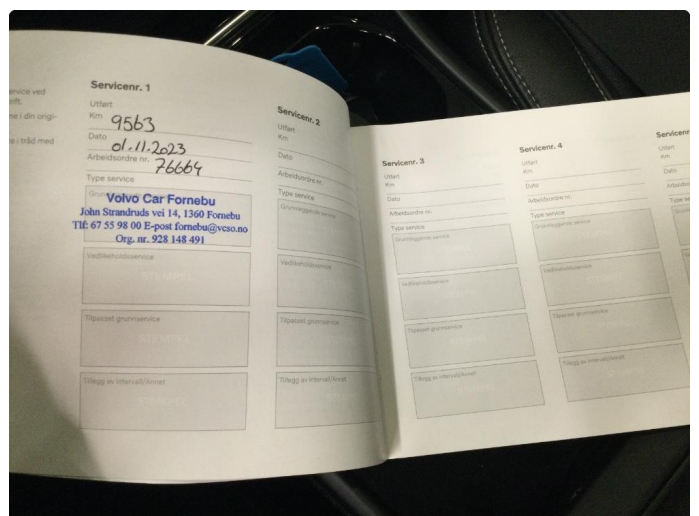 ervice ved
rift.
ne i din origi-
e i tråd med
Servicenr. 1
Utført
Km 9563
Dato 01.11.2023
Arbeidsordre nr. 76664
Type service
Volvo Car Fornebu
John Strandruds vei 14, 1360 Fornebu
Tlf: 67 55 98 00 E-post fornebu@vcso.no
Org. nr. 928 148 491
Vedlikeholdsservice
STEMPEL
Tilpasset grunnservice
STEMPEL
Tillegg av intervall/Annet
STEMPEL
Servicenr. 2
Utført
Km
Dato
Arbeidsordre nr.
Type service
Grunnleggende service
Vedlikeholdsservice
Tilpasset grunnservice
Tillegg av intervall/Annet
Servicenr. 3
Utført
Km
Dato
Arbeidsordre nr.
Type service
Grunnleggende service
Vedlikeholdsservice
Tilpasset grunnservice
Tillegg av intervall/Annet
Servicenr. 4
Utført
Km
Dato
Arbeidsordre nr.
Type service
Grunnleggende service
Vedlikeholdsservice
Tilpasset grunnservice
Tillegg av intervall/Annet
Servicenr
Utført
Km
Dato
Arbeidso
Type se